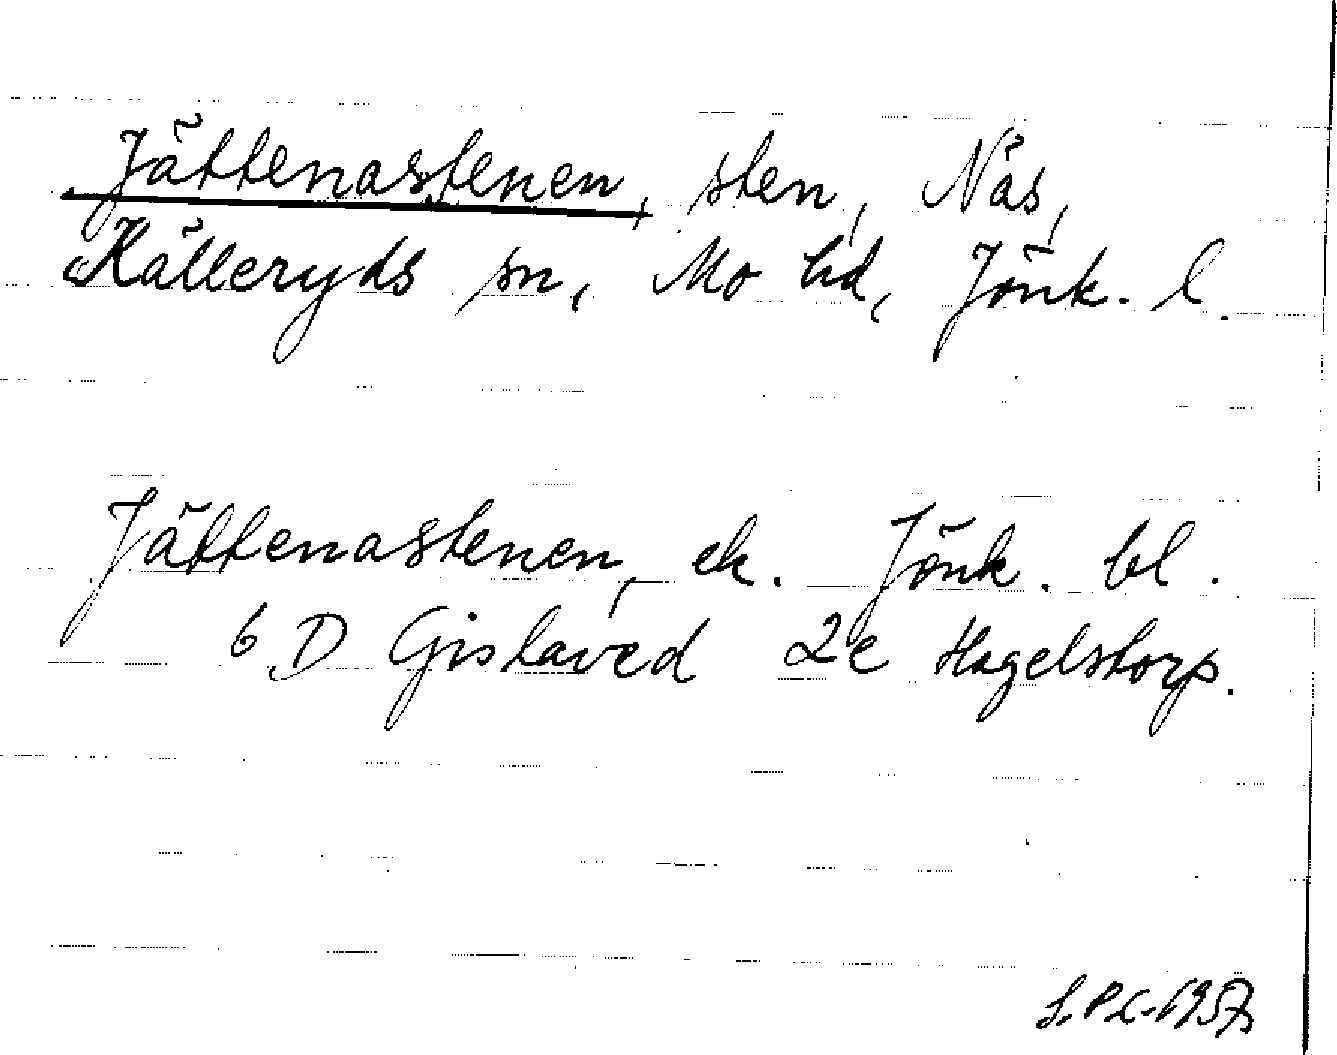 Jättenastenen, sten, Nås,
Källeryds sn, Mo hd, Jönk. l.
Jättenastenen, ek. Jönk. bl.
6 D Gislaved 2e Hagelstorp.
1957